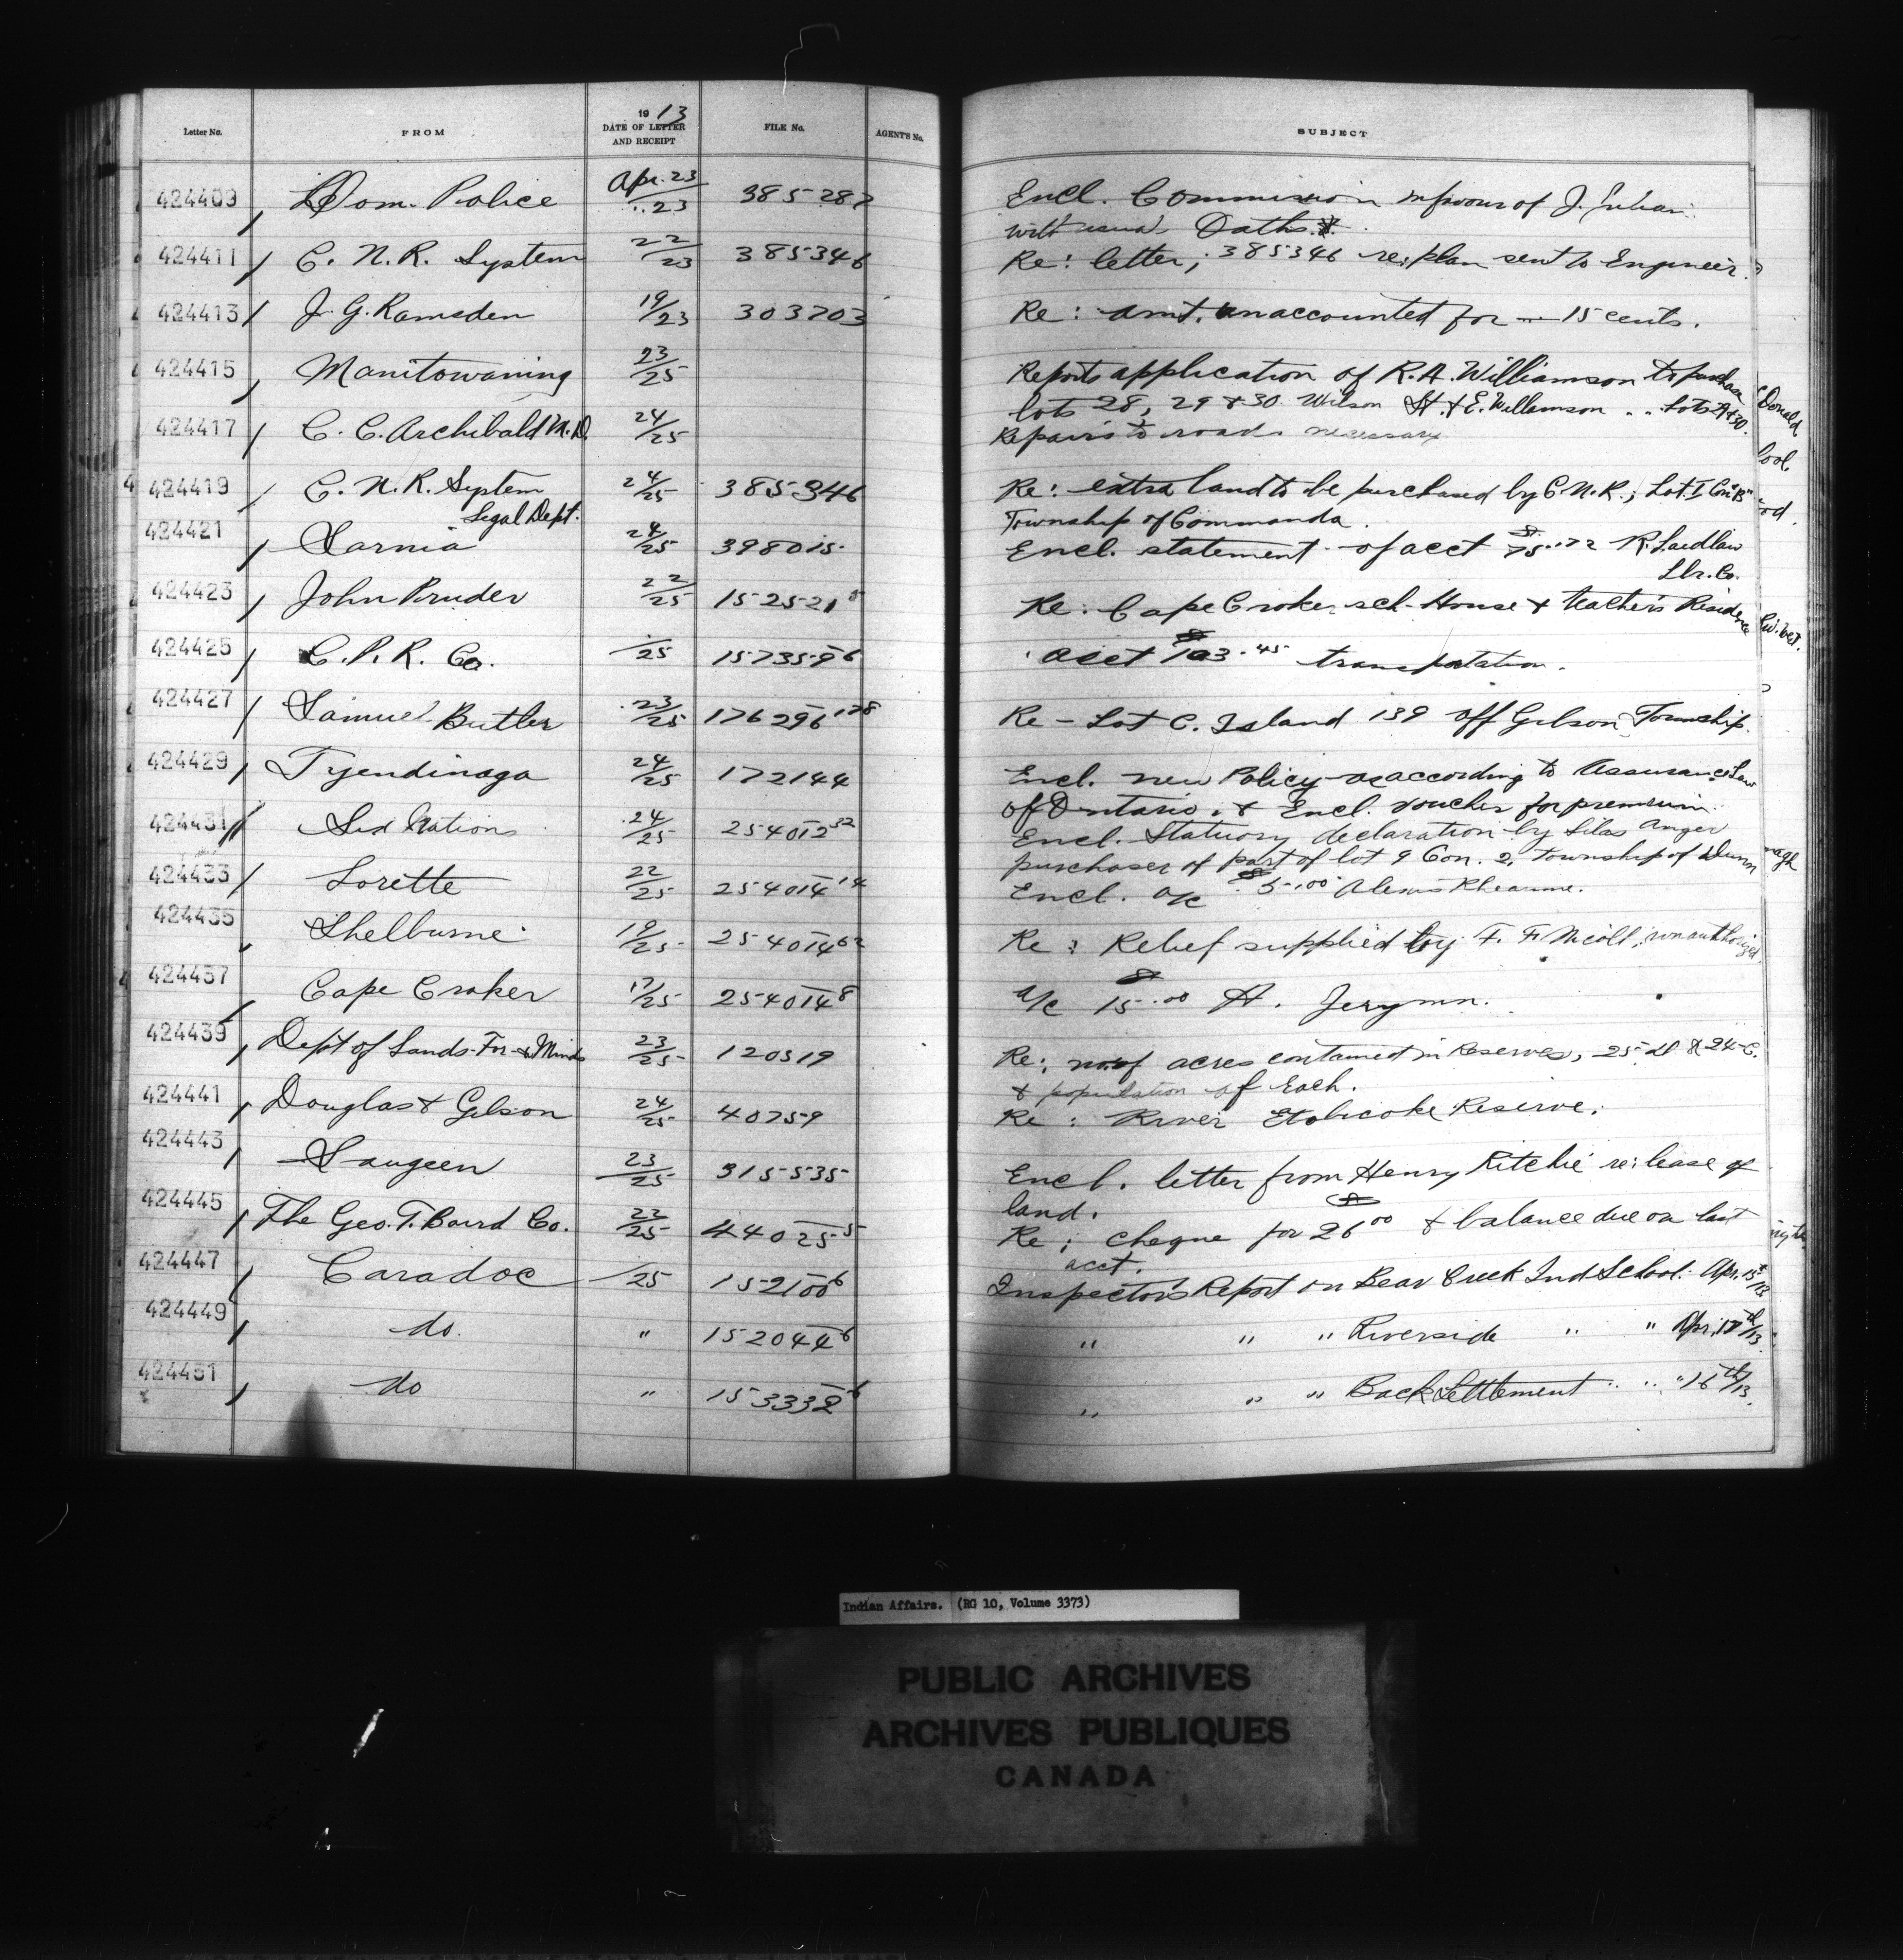 Letter No. FROM 1913 DATE OF LETTER AND RECEIPT FILE No. AGENT'S No. SUBJECT
424409 Dom. Police Apr. 23/23 385287 Encl. Commission in favour of J.
with usual Oaths.
424411 C. N. R. System 22/23 385346 Re: letter, 385346 re: plan sent to Engineer.
424413 J. G. Ramsden 19/23 303703 Re: amt. unaccounted for — 15 cents.
424415 Manitowaning 23/25 Reports application of R. A. Williamson to purchase
lots 28, 29 & 30 Wilson St. & E. Williamson " " Lots 29 & 30.
424417 C. C. Archibald M.D. 24/25 Repairs to roads necessary
424419 C. N. R. System 24/25 385346 Re: extra land to be purchased by C. N. R.; Lot. I Con "B"
Legal Dept. Township of Commanda.
424421 Sarnia 24/25 398015 Encl. statement of acct $75.72 R. Laidlaw
Lbr. Co.
424423 John Pruder 22/25 152521 Re: Cape Croker sch-House & teacher's Residence
424425 C. P. R. Co. /25 157359-6 acct $103.45 transportation.
424427 Samuel Butler 23/25 176296-178 Re - Lot C. Island 139 off Gibson Township.
424429 Tyendinaga 24/25 172144 Encl. new Policy as according to Assurance Law
of Ontario. & Encl. voucher for premium.
424431 Six Nations 24/25 254012-32 Encl. Statuory declaration by Silas Anger
purchaser of part of lot 9 Con. 2, township of Dunn
424433 Lorette 22/25 254014-14 Encl. a/c $5.00 Alexis
424435 Shelburne 19/25 254014-62 Re: Relief supplied by F. F. Nicoll, unauthorized.
424437 Cape Croker 17/25 254014-8 a/c $15.00 H. Jerymn.
424439 Dept of Lands-For-& Mines 23/25 120519 Re: no. of acres contained in Reserves, 25 & 24-C.
& population of Each.
424441 Douglas & Gibson 24/25 40759 Re: River Etobicoke Reserve.
424443 Saugeen 23/25 315535 Encl. letter from Henry Ritchie re: lease of
land.
424445 The Geo. T. Baird Co. 22/25 44025-5 Re; cheque for $26.00 & balance due on last
acct.
424447 Caradoc /25 152100-6 Inspector's Report on Bear Creek Ind School. Apr. 15th/13
424449 do. " 152044-6 " " " Riverside " " Apr. 17th/13.
424451 do " 153332-6 " " " Back Settlement " " " 16th/13.
Indian Affairs. (RG 10, Volume 3373)
PUBLIC ARCHIVES
ARCHIVES PUBLIQUES
CANADA